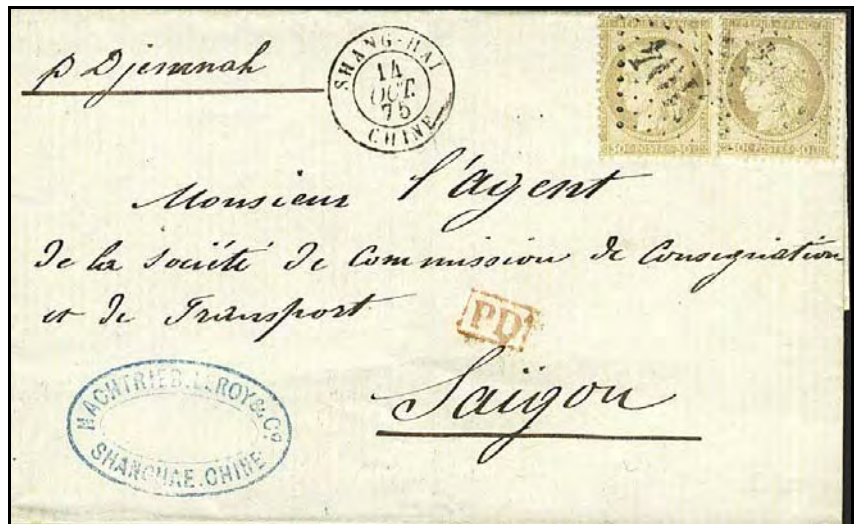 p Djemnah
SHANG-HAI
14
OCT.
75
CHINE
Monsieur l'agent
de la Société de Commission de Consignation
et de Transport
PD
Saïgon
NACHTRIEB.LEROY & Co.
SHANGHAE.CHINE